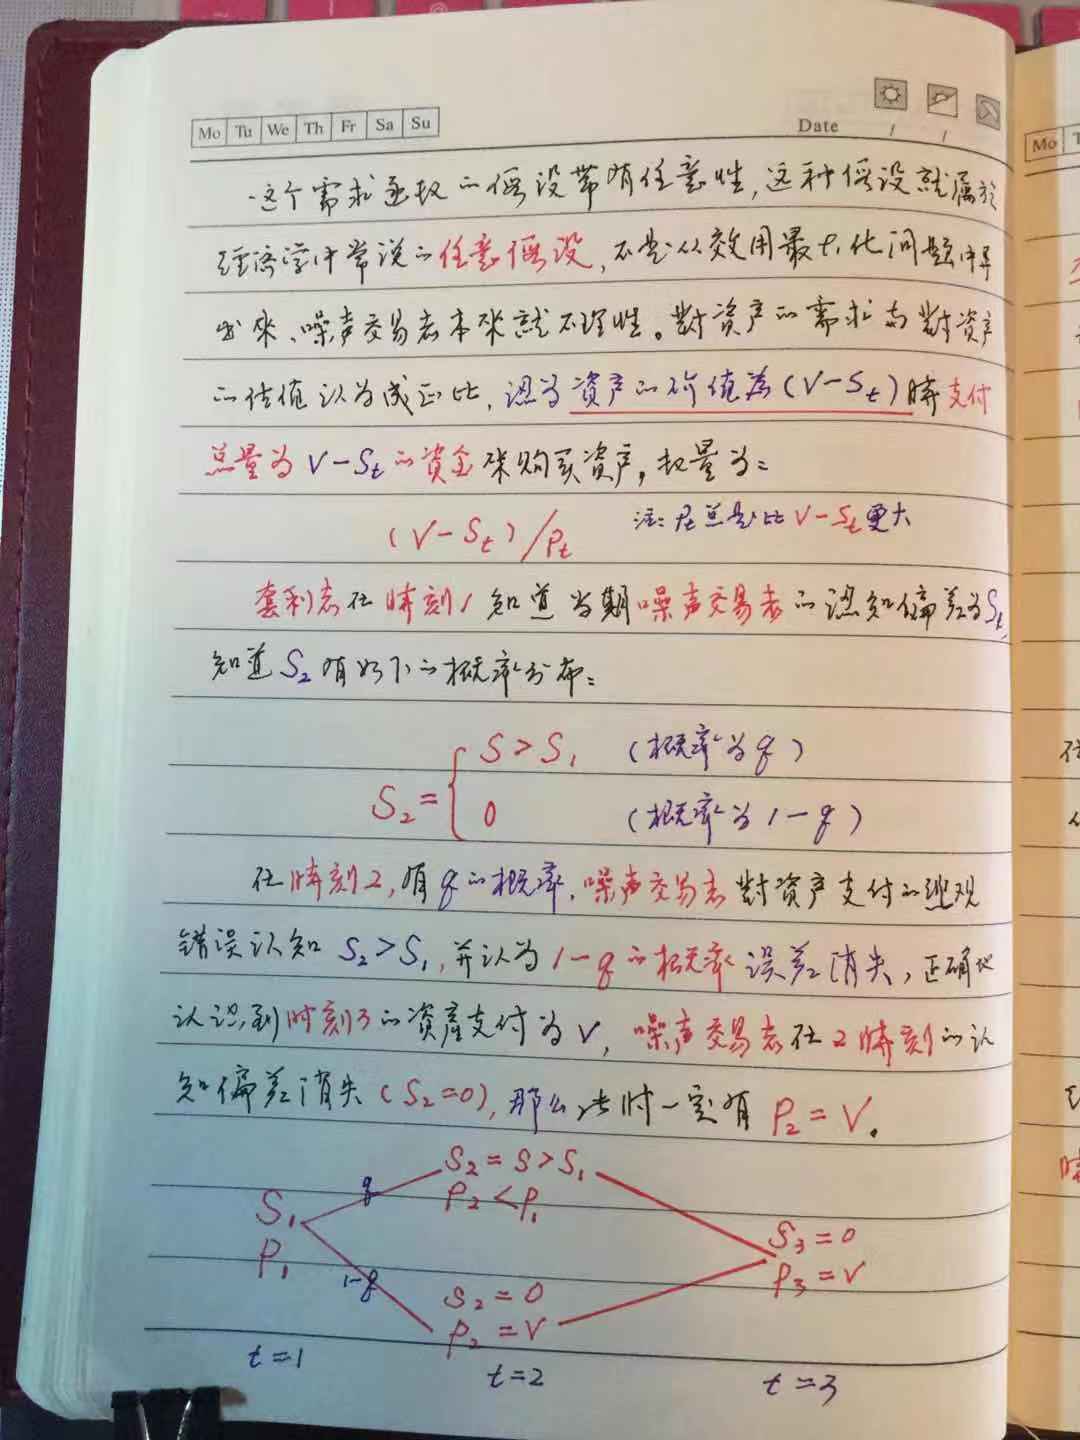 Mo Tu We Th Fr Sa Su
Date / /
Mo
这个需求函数的假设带有任意性,这种假设就属於
经济学中常说的任意假设,不是从效用最大化问题中导
出来、噪声交易者本来就不理性。對資产的需求与對資产
的估值认为成正比,認为資产的价值為(V-St)時支付
总量为V-St的資金来购买資产,数量为:
(V-St)/Pt 注:Pt总是比V-St更大
套利者在時刻1知道当期噪声交易者的認知偏差为St,
知道S2有如下的概率分布:
S2={ S>S1 (概率为q)
0 (概率为1-q)
在時刻2,有q的概率,噪声交易者對資产支付的悲观
错误认知S2>S1,并认为1-q的概率误差消失,正确地
认识到时刻3的資產支付为V,噪声交易者在2時刻的认
知偏差消失(S2=0),那么此时一定有P2=V。
S2=S>S1
q
P2<P1
S1
S3=0
P1
P3=V
1-q
S2=0
P2=V
t=1
t=2
t=3